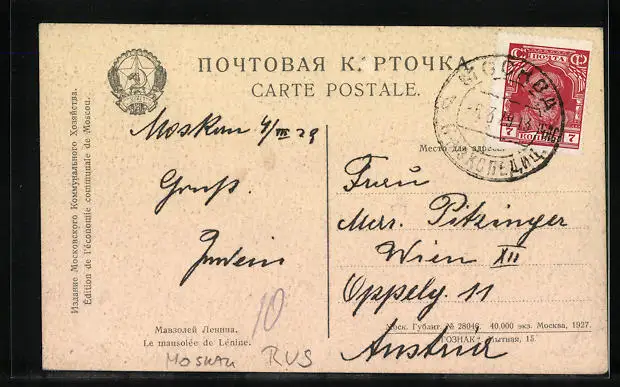 ПОЧТОВАЯ К РТОЧКА.
CARTE POSTALE.
Издание Московского Коммунального Хозяйства.
Édition de l'économie communale de Moscou.
ПОЧТА
7 7
МОСКВА
Moskau 4/III 29
Место для адреса
Gruß.
Frau
Mar. Pitzinger
Wien XII
Oppelg. 11
Austria
10
Мавзолей Ленина.
Le mausolée de Lénine.
Моск. Гублит. № 28046. 40.000 экз. Москва, 1927.
ГОЗНАК. Мытная, 15.
MOSKAU RUS